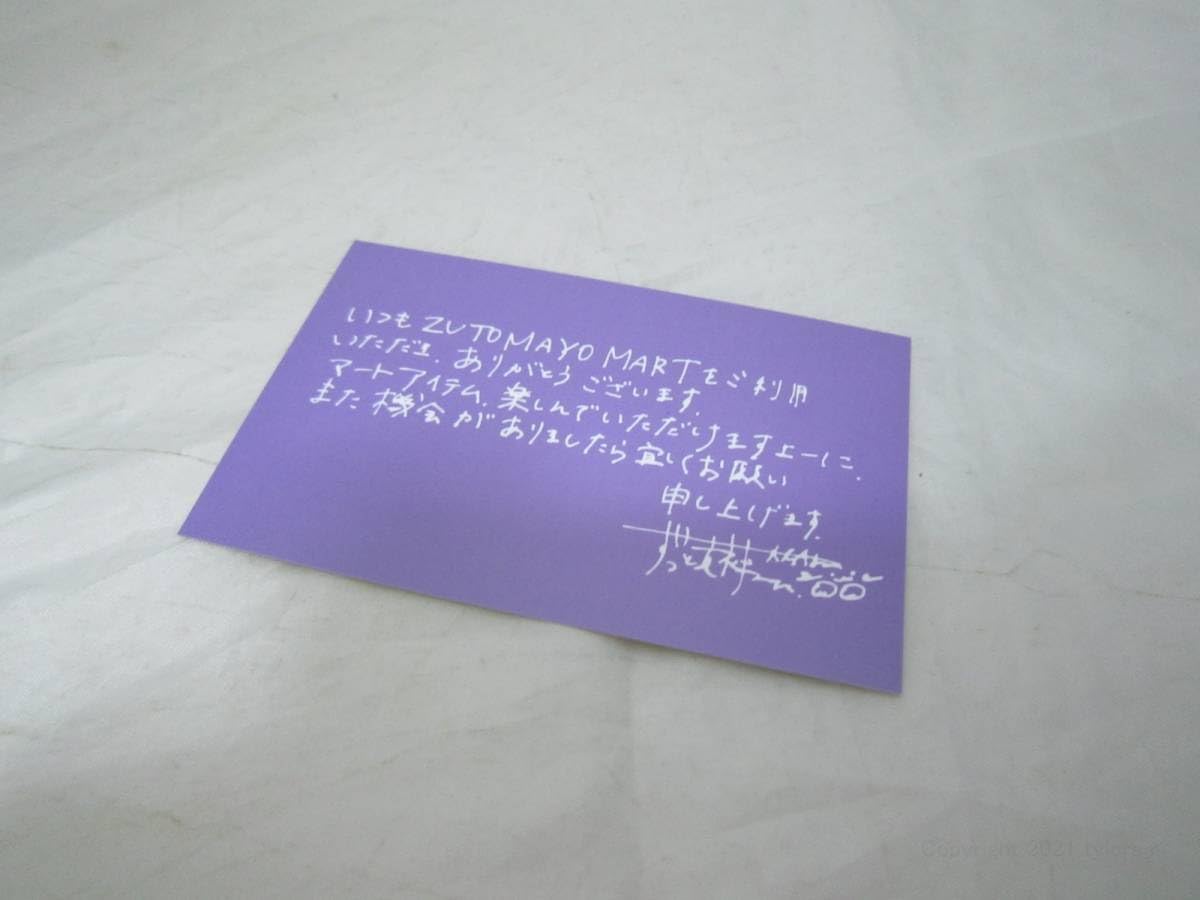 いつもZUTOMAYO MARTをご利用
いただき、ありがとうございます。
マートアイテム、楽しんでいただけますよーに。
また機会がありましたら宜しくお願い
申し上げます。
ずっと真夜中
Copyright 2021